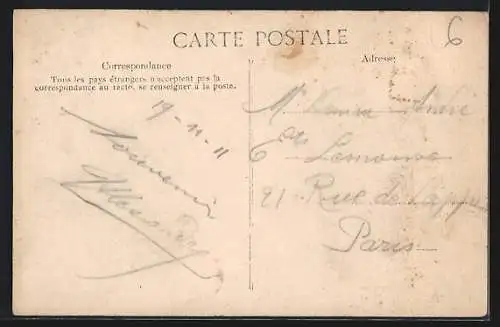 CARTE POSTALE
6
Correspondance
Tous les pays étrangers n'acceptent pas la
correspondance au recto, se renseigner à la poste.
19-11-11
Souvenir
Adresse
M
Ets Lemoine
21 Rue de Lappe
Paris